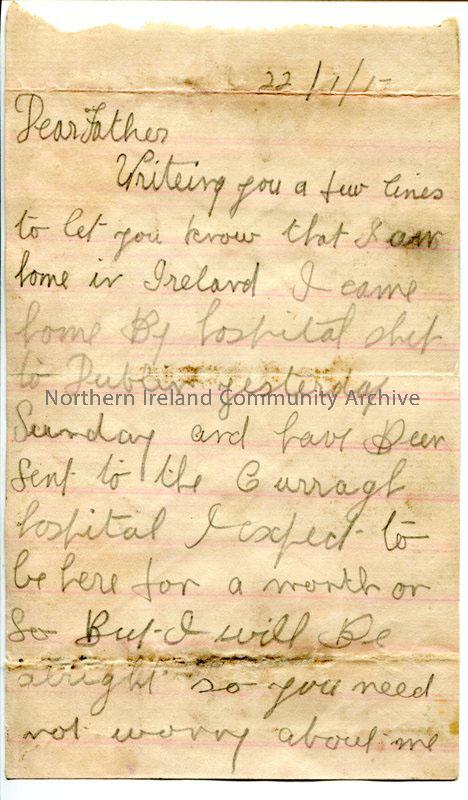 22/1/17
Dear Father
Writeing you a few lines
to let you know that I am
home in Ireland I came
home By hospital ship
to Dublin yesterday
Northern Ireland Community Archive
Sunday and have Been
sent to the Curragh
hospital I expect to
be here for a month or
so But I will Be
alright so you need
not worry about me